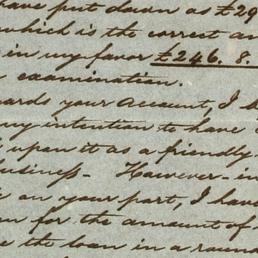 have put down as £29
which is the correct am
in my favor £246. 8.
examination.
ards your account, I
my intention to have
upon it as a friendly
business - However - in
on your part, I have
for the amount of
the loan in a round